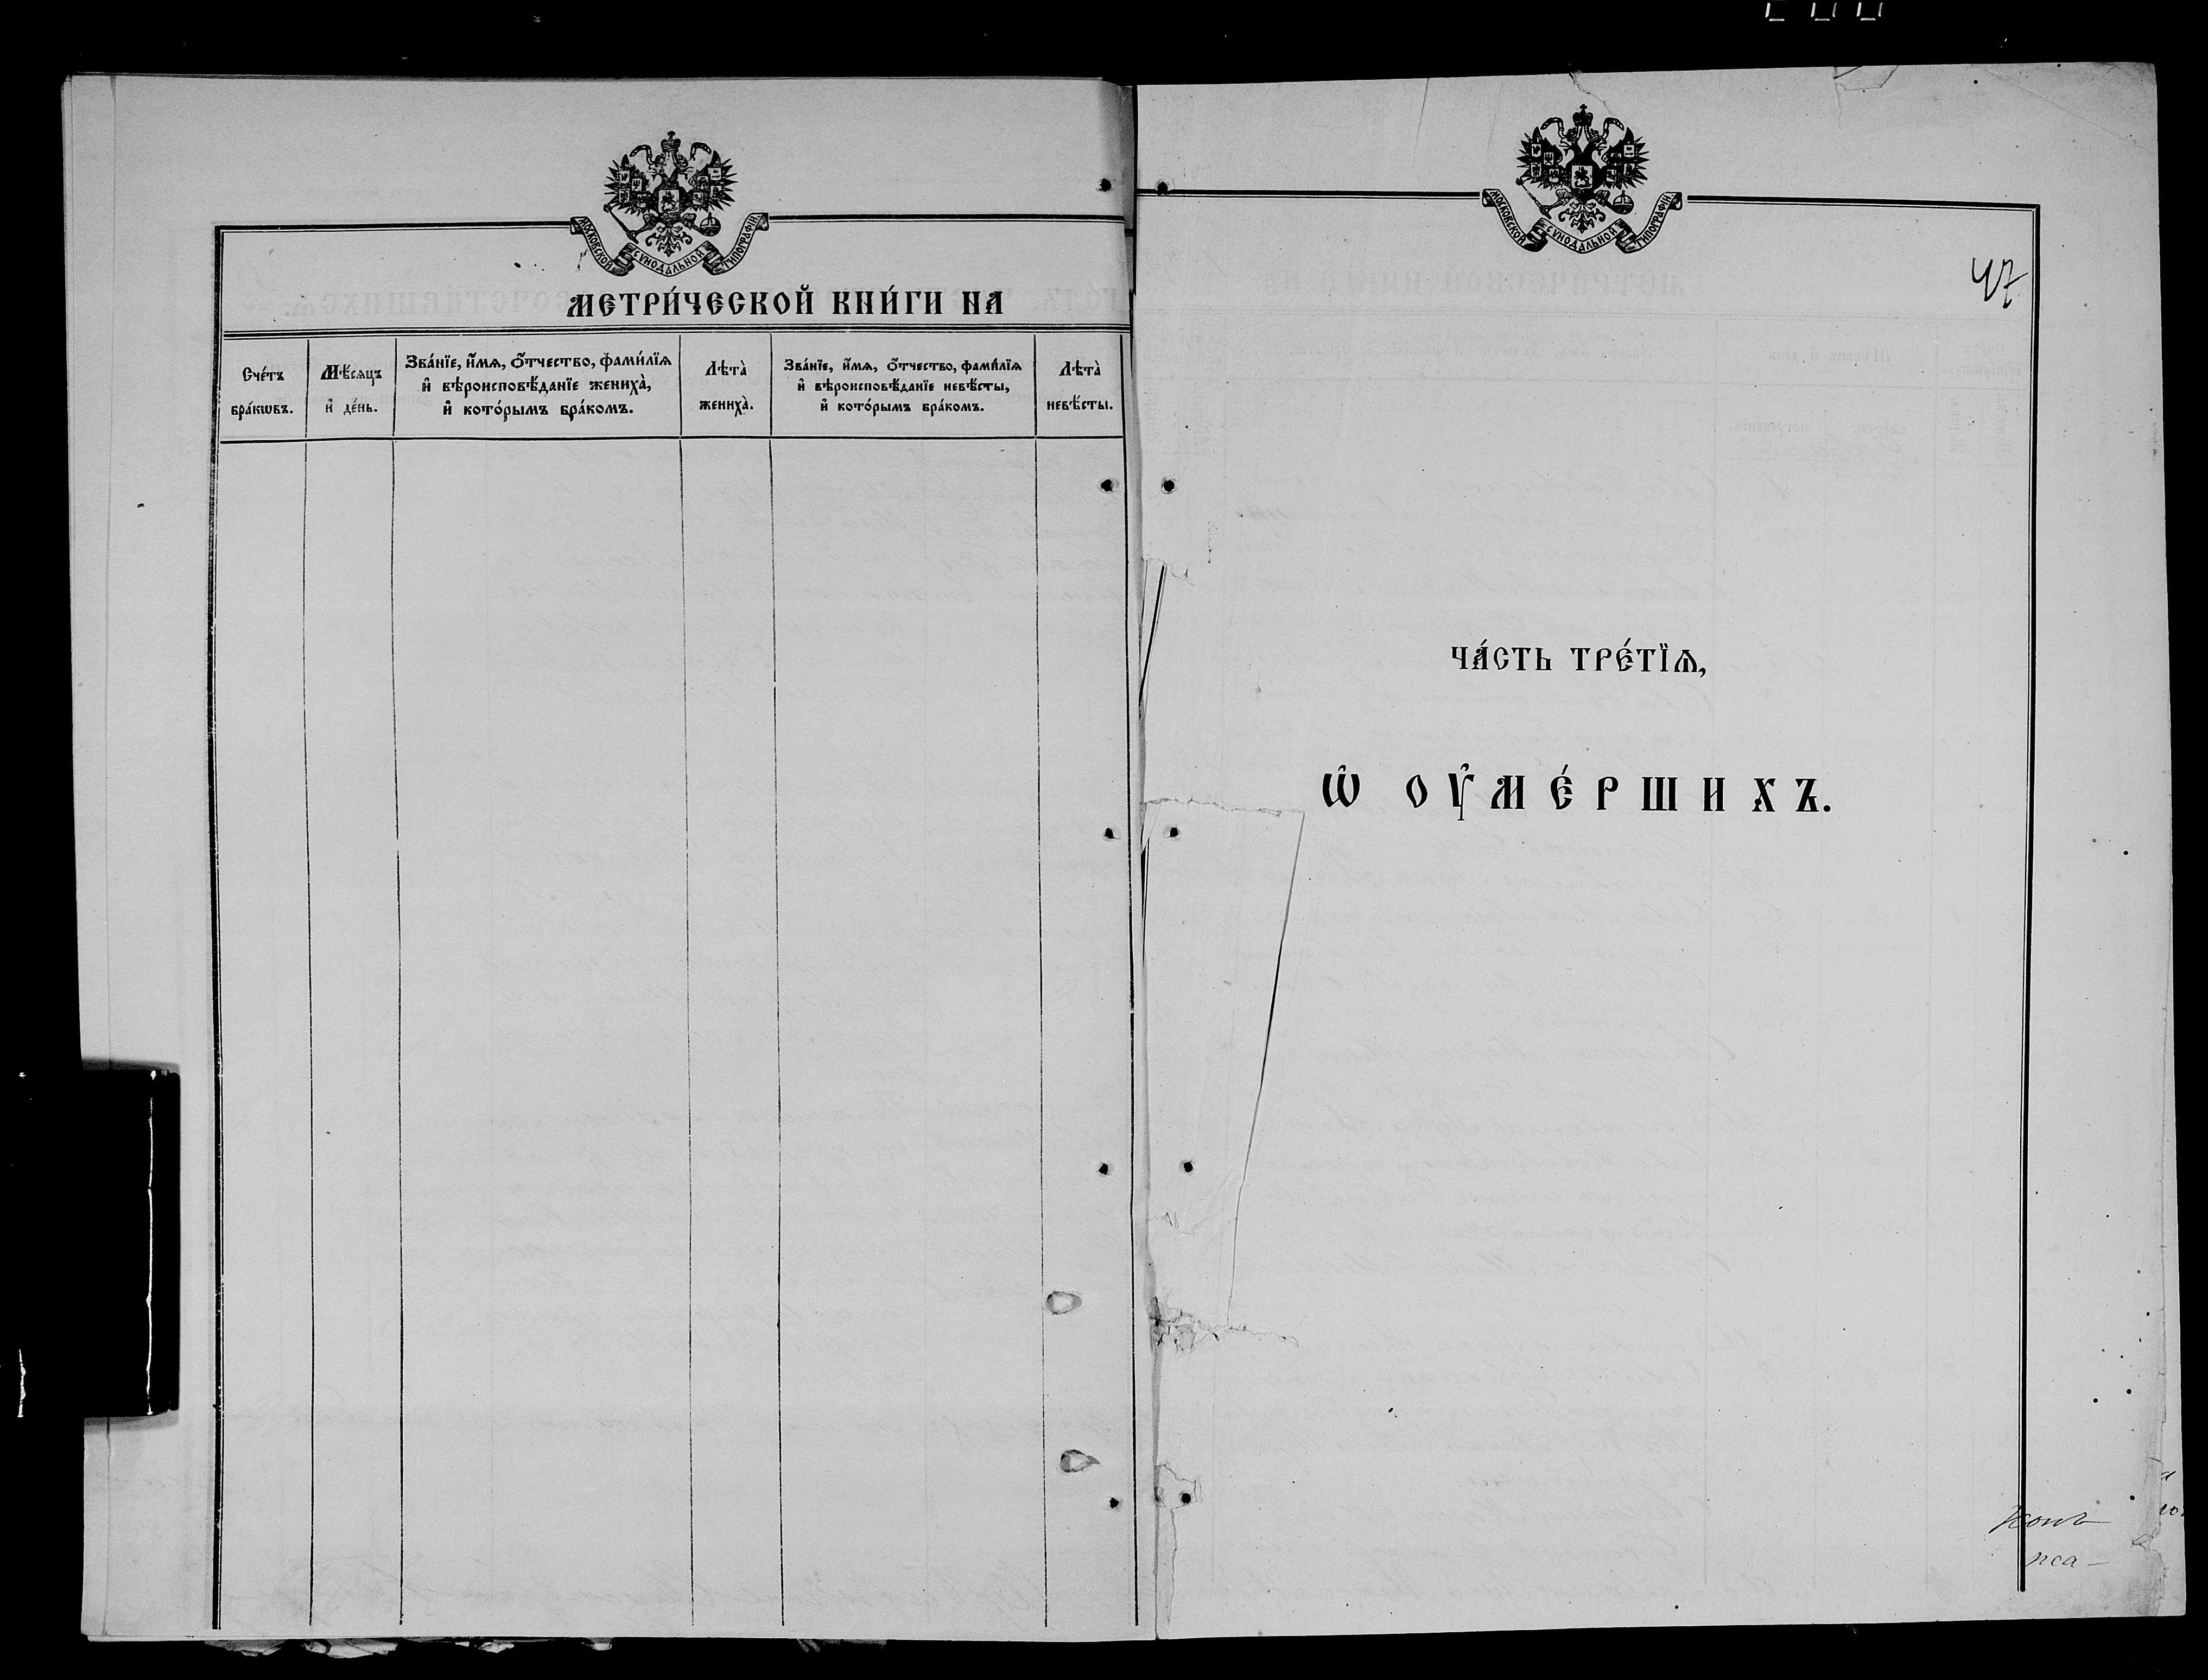 МОСКОВСКОЙ СѴНОДАЛЬНОЙ ТИПОГРАФІИ.
МЕТРИ́ЧЕСКОЙ КНИ́ГИ НА
Сче́тъ бра́кѡвъ.
Мѣ́сяцъ и҆ де́нь.
Зва́нїе, и҆́мѧ, ѻ҆́тчество, фами́лїѧ
и҆ вѣроисповѣ́данїе жениха̀,
и҆ кото́рымъ бра́комъ.
Лѣта̀ жениха̀.
Зва́нїе, и҆́мѧ, ѻ҆́тчество, фами́лїѧ
и҆ вѣроисповѣ́данїе невѣ́сты,
и҆ кото́рымъ бра́комъ.
Лѣта̀ невѣ́сты.
МОСКОВСКОЙ СѴНОДАЛЬНОЙ ТИПОГРАФІИ.
47
ЧА́СТЬ ТРЕ́ТЇѦ,
Ѡ҆ ОУ҆МЕ́РШИХЪ.
пса-